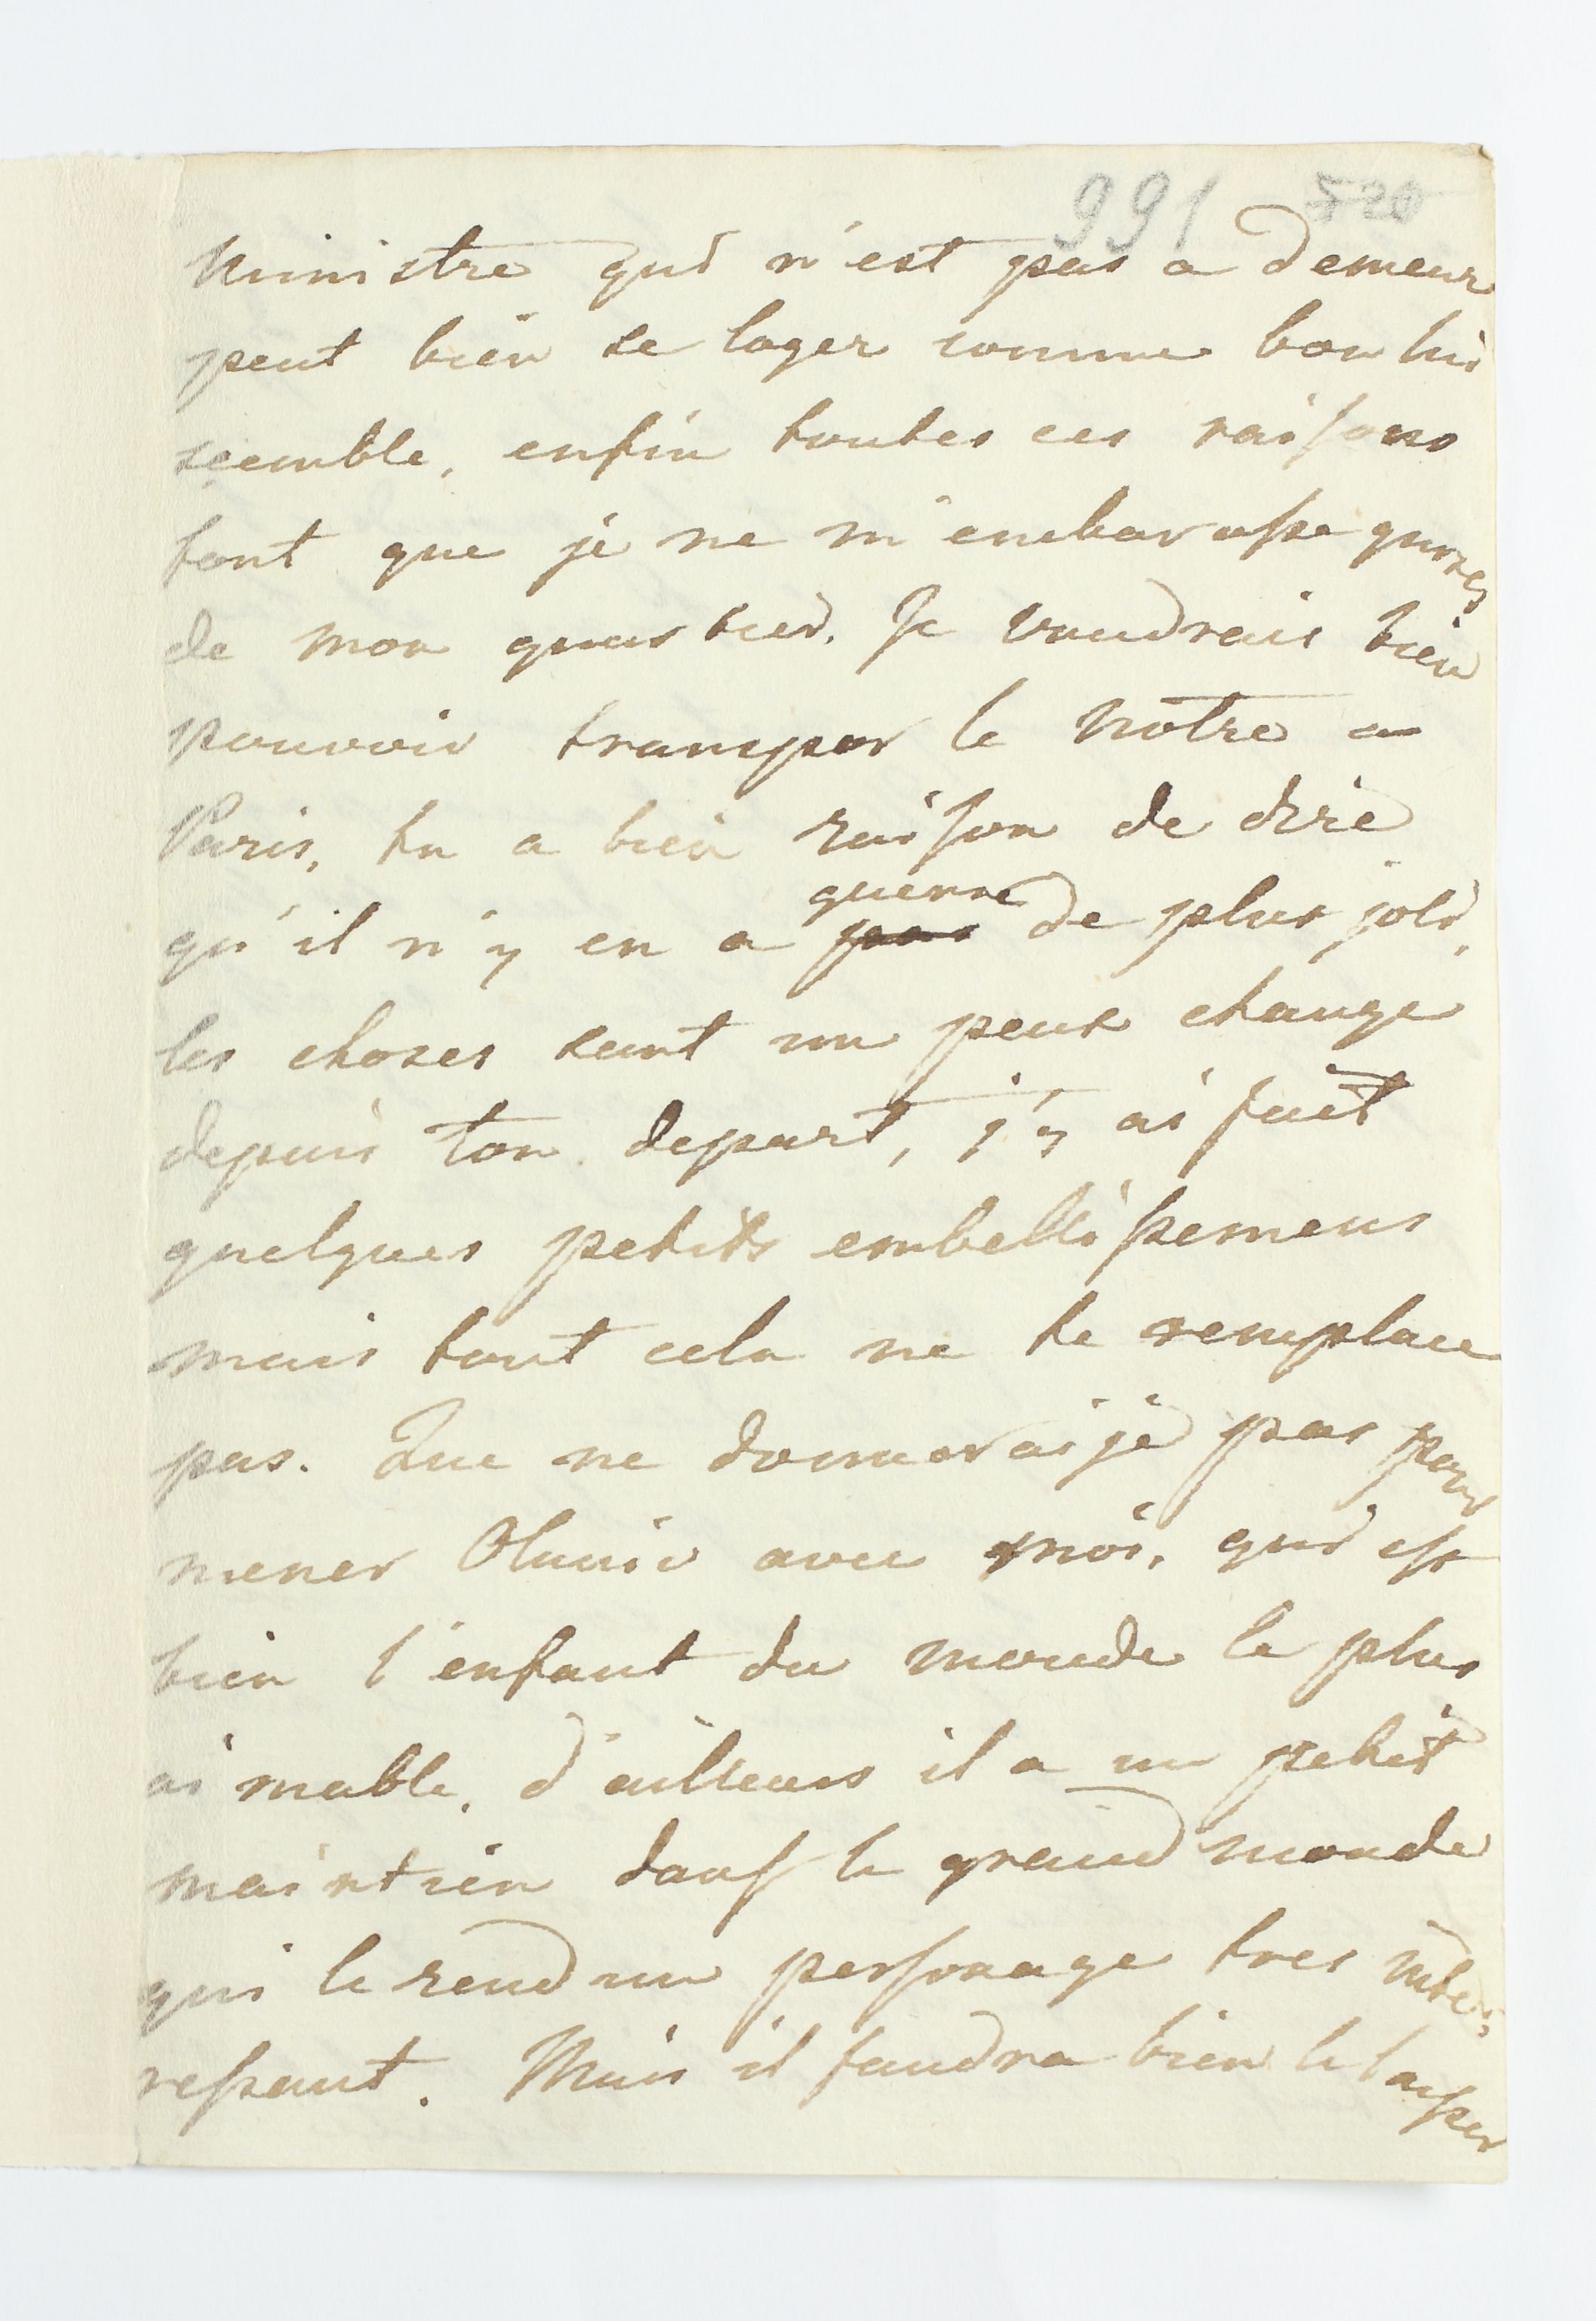 991 520
Ministre qui n'est pas a demeur
peut bien se loger comme bon lui
scemble, enfin toutes ces raisons
font que je ne m'embarasse guere
de mon quartier. Je voudrais bien
pouvoir transpor le notre a
Paris, tu a bien raison de dire
guerre
qu'il n'y en a pas de plus joli,
les choses sont un peux change
depuis ton depart, j'y ai fait
quelques petits embellissemens
mais tout cela ne te remplace
pas. Que ne donnerai je pas pour
mener avec moi, qui est
bien l'enfant du monde le plus
aimable, d'ailleurs il a un petit
maintien dans le grand monde
qui le rend un personage tres inte:
ressant. Mais il faudra bien le laisser